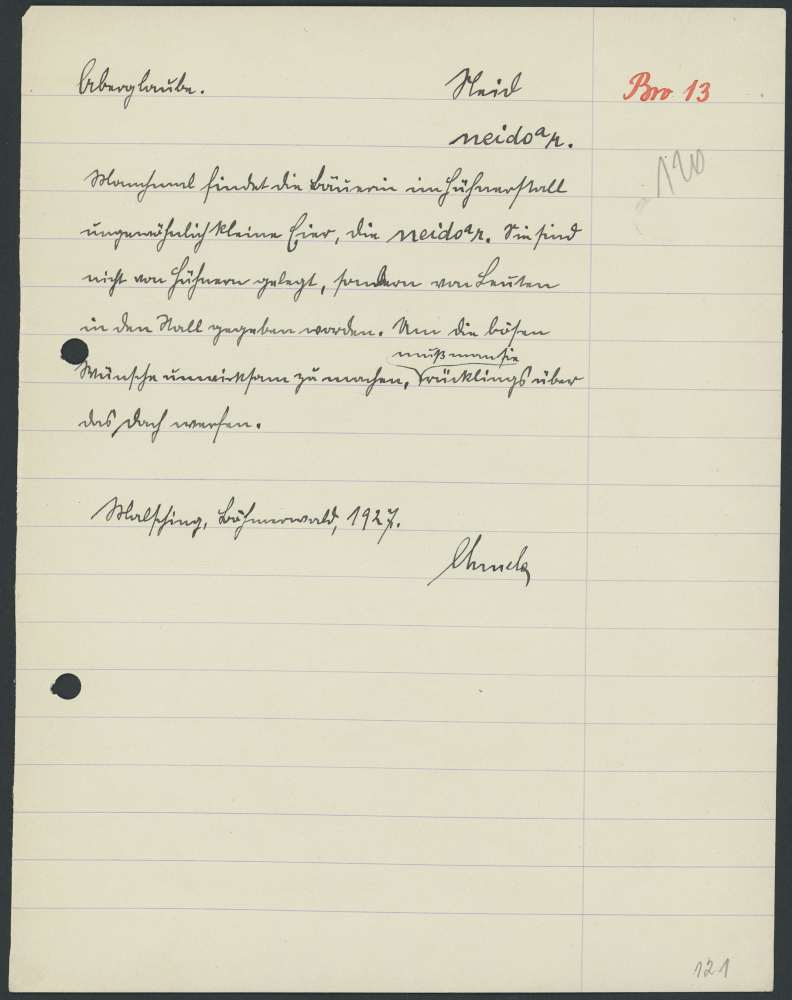 Aberglaube. Neid Bro 13
neidoᵃr. 120
Manchmal findet die Bäuerin im Hühnerstall
ungewöhnlich kleine Eier, die neidoᵃr. Sie sind
nicht von Hühnern gelegt, sondern von Leuten
in den Stall gegeben worden. Um die bösen
muß man sie
Wünsche unwirksam zu machen, rücklings über
das Dach werfen.
Malsching, Böhmerwald, 1927.
121